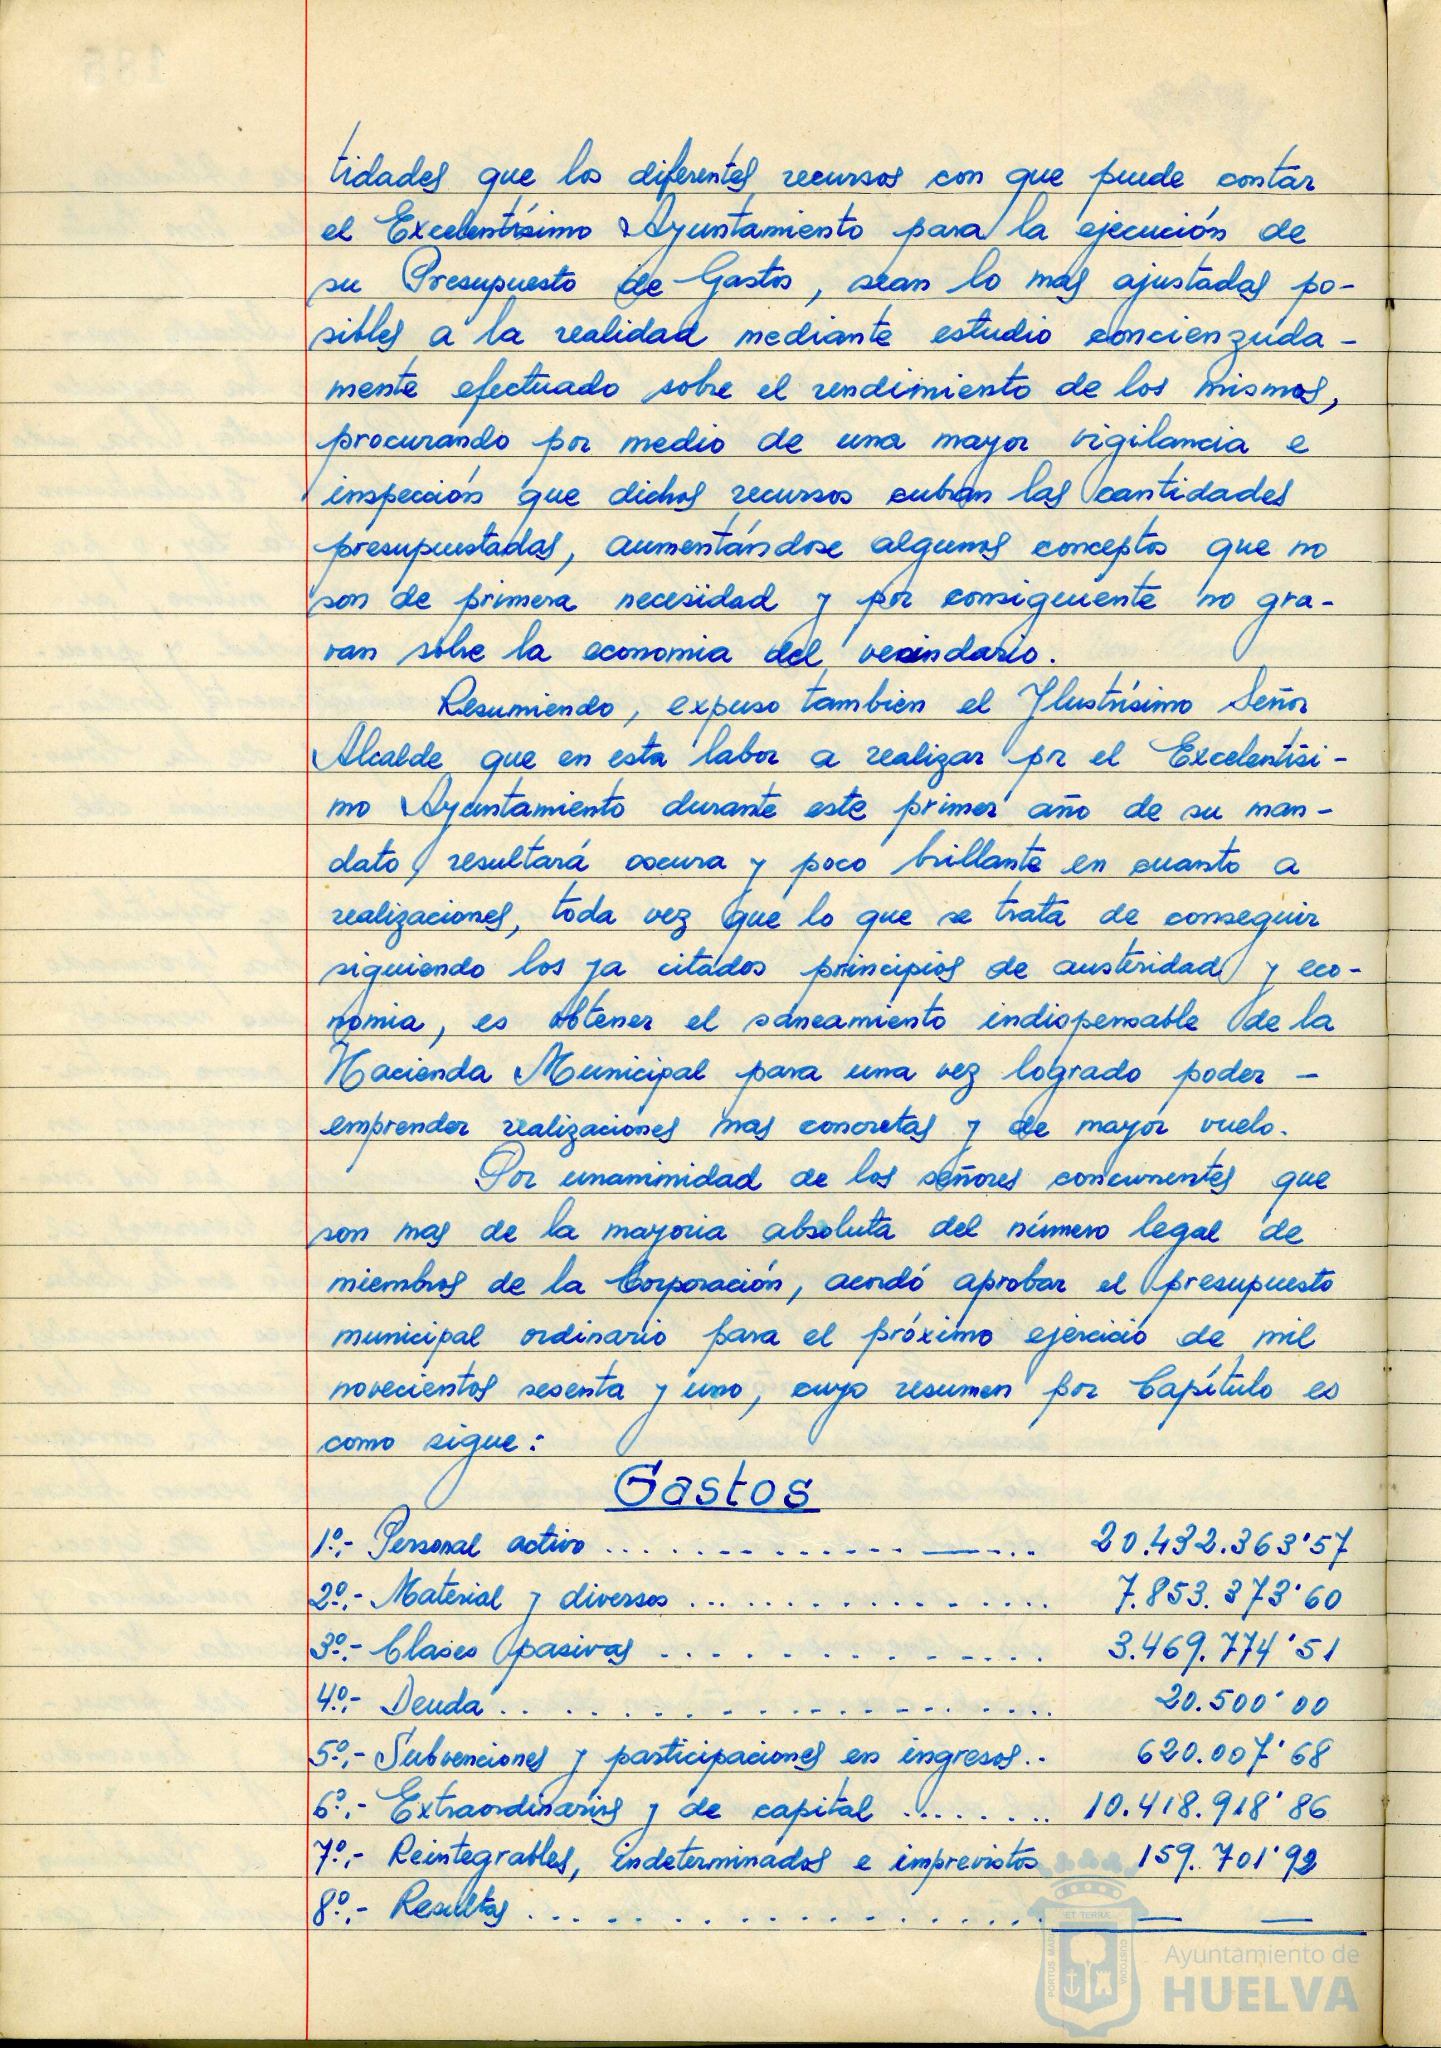 tidades que los diferentes recursos con que puede contar
el Excelentísimo Ayuntamiento para la ejecución de
su Presupuesto de Gastos, sean lo mas ajustadas po-
sibles a la realidad mediante estudio concienzuda-
mente efectuado sobre el rendimiento de los mismos,
procurando por medio de una mayor vigilancia e
inspección que dichos recursos cubran las cantidades
presupuestadas, aumentándose algunos conceptos que no
son de primera necesidad y por consiguiente no gra-
van sobre la economia del vecindario.
Resumiendo, expuso tambien el Ylustrísimo Señor
Alcalde que en esta labor a realizar pr el Excelentísi-
mo Ayuntamiento durante este primer año de su man-
dato, resultará oscura y poco brillante en cuanto a
realizaciones, toda vez que lo que se trata de conseguir
siguiendo los ya citados principios de austeridad y eco-
nomia, es obtener el saneamiento indispensable de la
Hacienda Municipal para una vez logrado poder -
emprender realizaciones mas concretas y de mayor vuelo.
Por unanimidad de los señores concurrentes que
son mas de la mayoria absoluta del número legal de
miembros de la Corporación, acordó aprobar el presupuesto
municipal ordinario para el próximo ejercicio de mil
novecientos sesenta y uno, cuyo resumen por Capítulo es
como sigue:
Gastos
1º.- Personal activo .................. 20.432.363'57
2º.- Material y diversos ................ 7.853.373'60
3º.- Clases pasivas ................ 3.469.774'51
4º.- Deuda ...................... 20.500'00
5º.- Subvenciones y participaciones en ingresos.- 620.007'68
6º.- Extraordinarios y de capital ........ 10.418.918'86
7º.- Reintegrables, indeterminados e imprevistos 159.701'92
8º.- Resultas .................... — —
ET TERRÆ
PORTUS MARIS
CUSTODIA
Ayuntamiento de
HUELVA